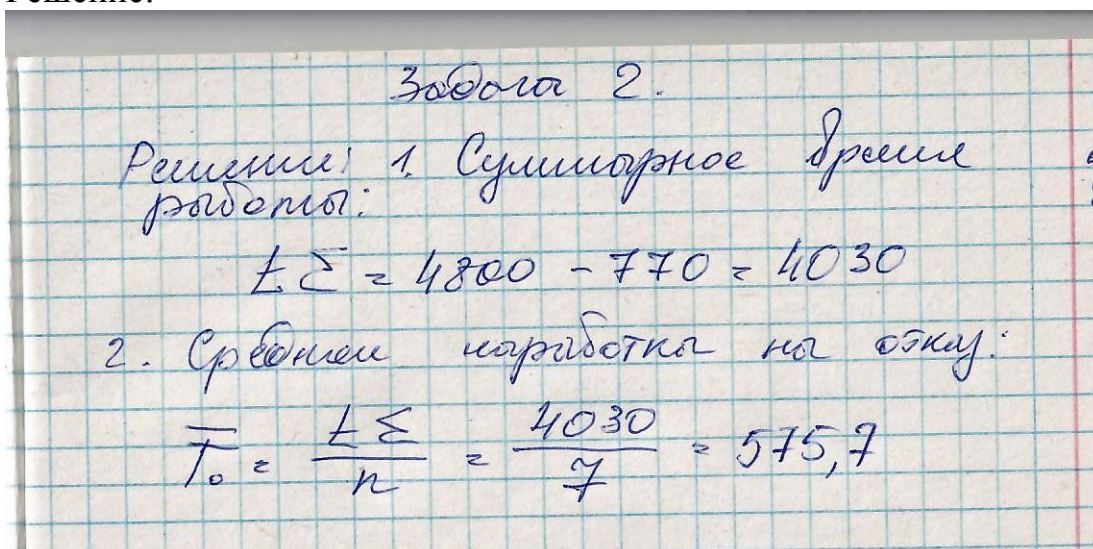 Решение:
Задача 2.
Решение: 1. Суммарное время
работы:
t Σ = 4800 - 770 = 4030
2. Средняя наработка на отказ:
T̅₀ = t Σ / n = 4030 / 7 = 575,7